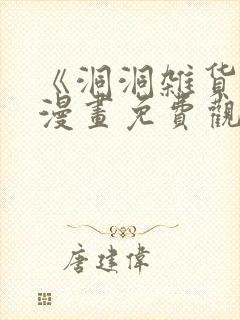 《洞洞雑货
漫畫免費觀
唐建偉